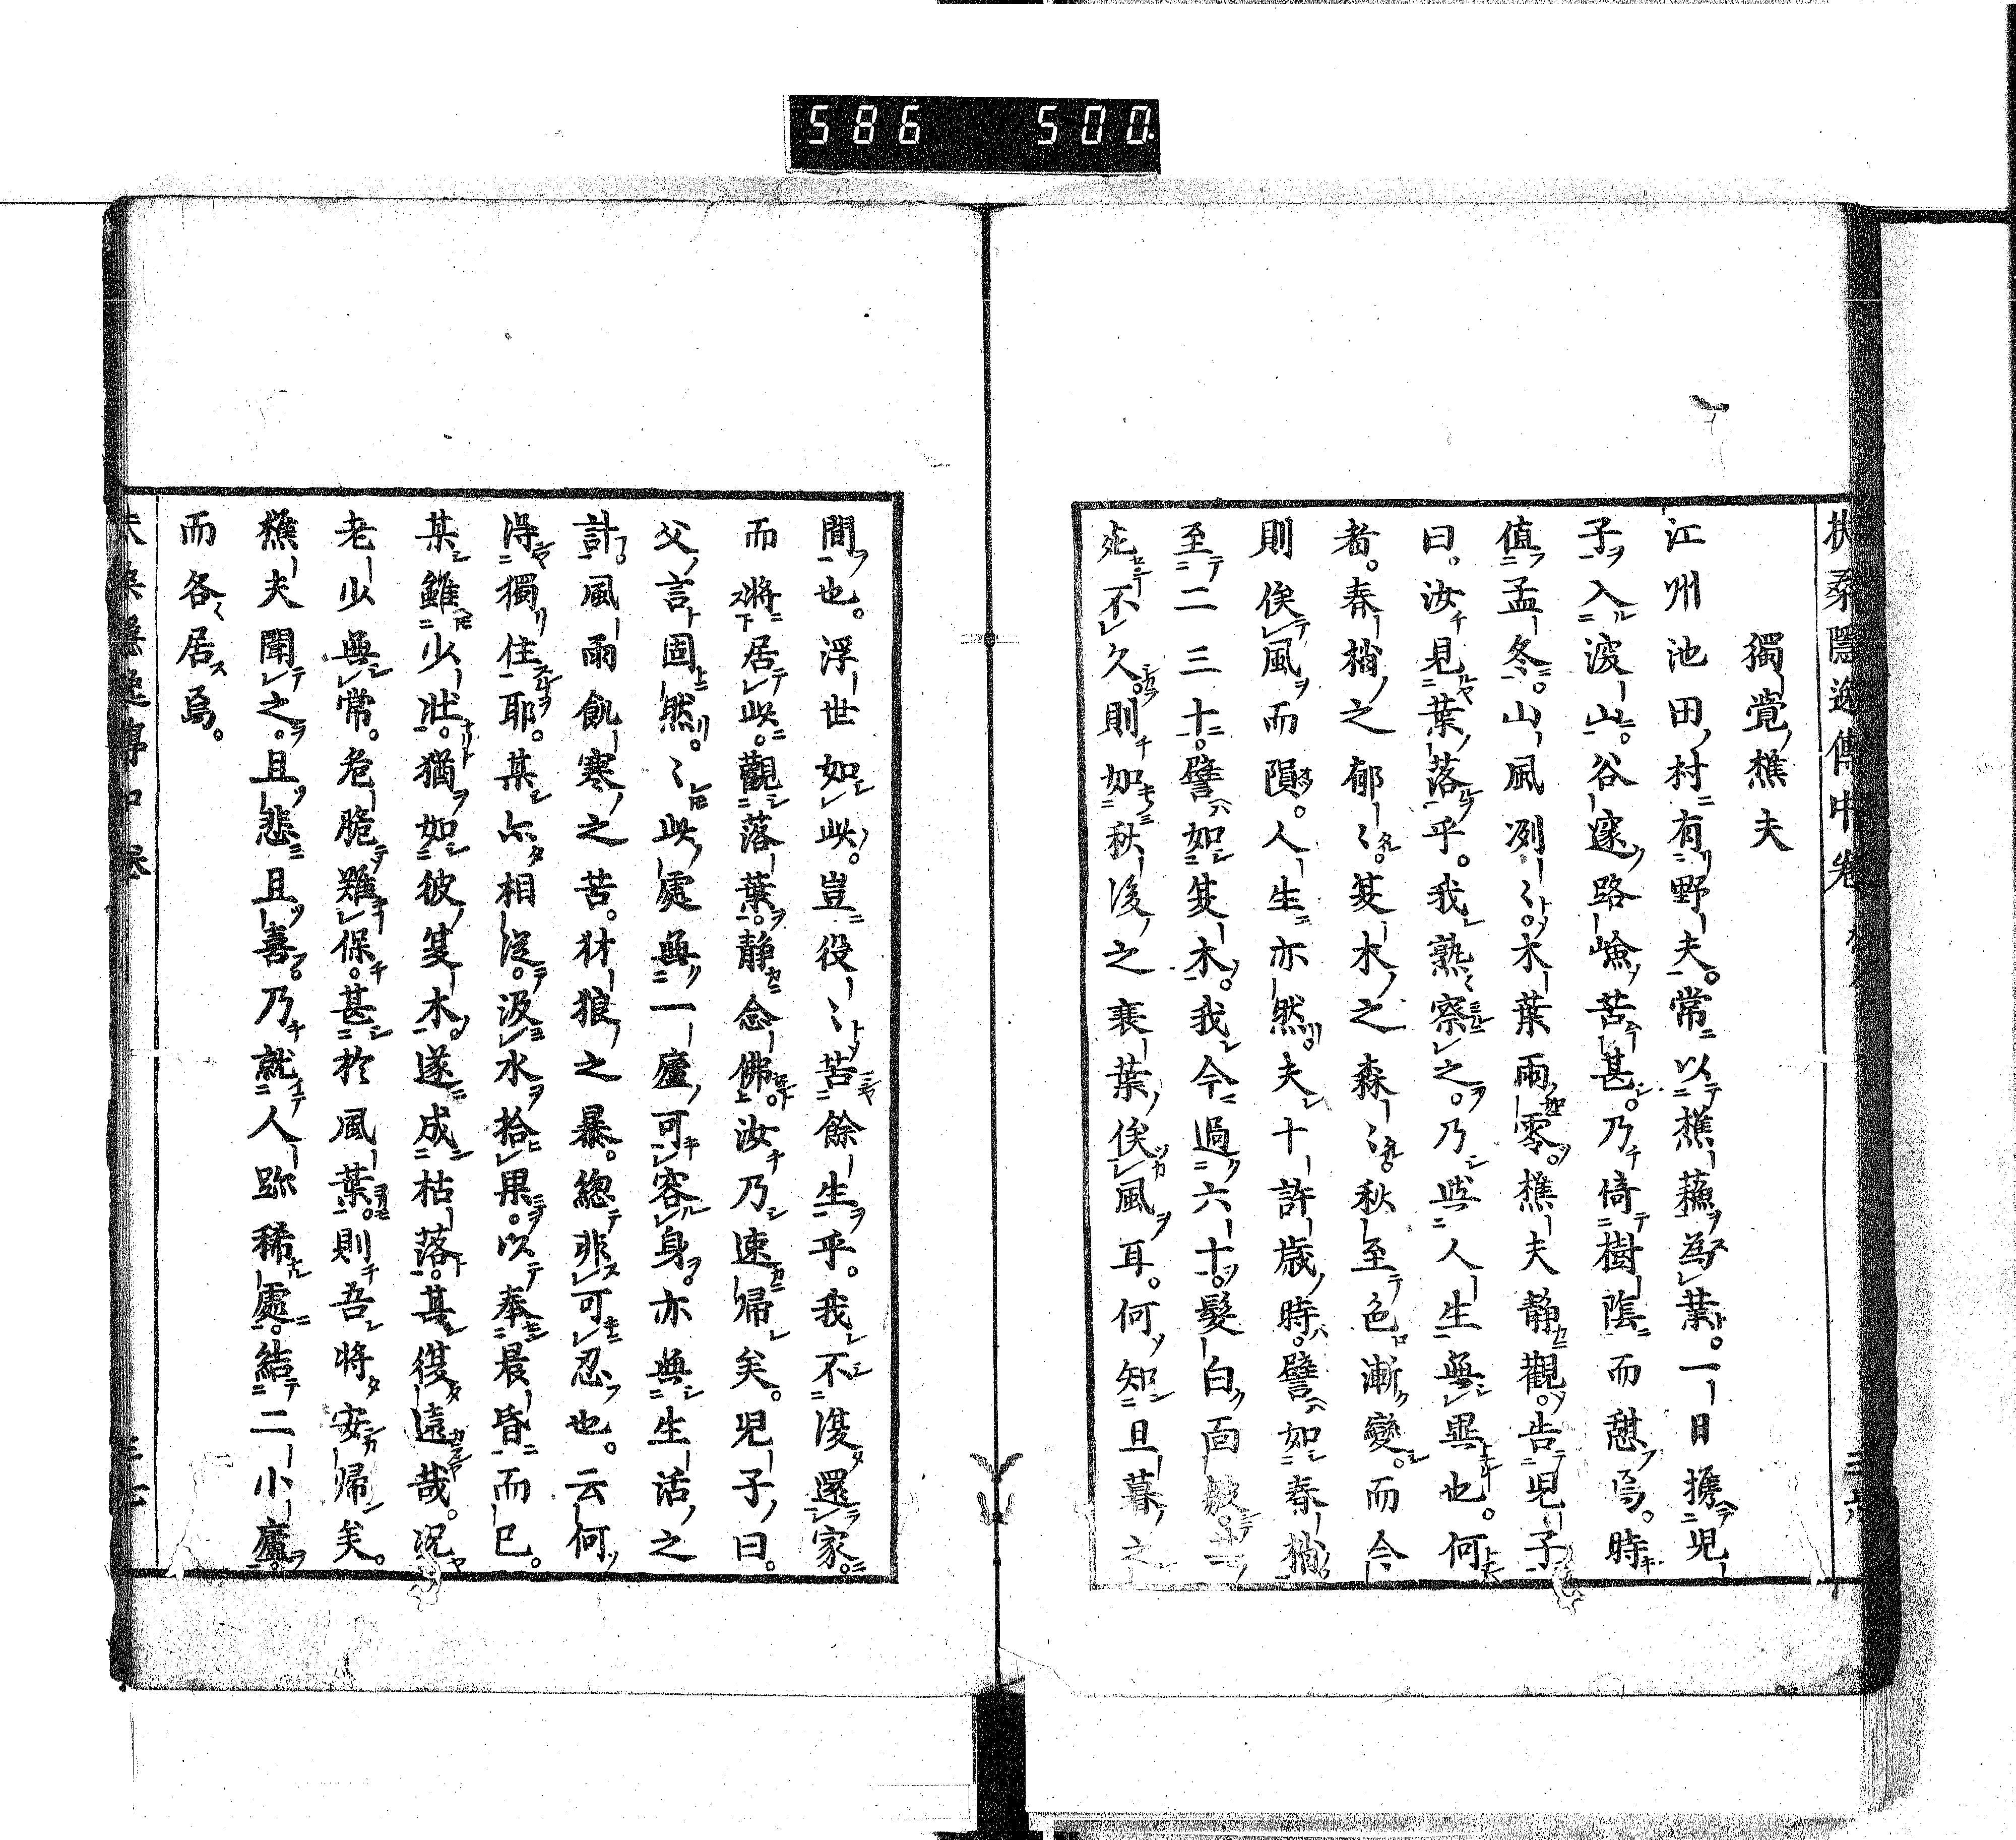 586 500.
扶桑隱逸傳中卷
三六
獨覺樵夫
江州池田村有野夫。常以樵蘇為葉。一日携兒
子入深山。谷邃路嶮苦甚。乃倚樹陰而憇焉。時
值孟冬。山風冽〻。木葉雨零。樵夫靜觀。告兒子
曰。汝見葉落乎。我熟察之。乃與人生無異也。何
者。春梢之郁〻。夏木之森〻。秋至色漸變。而今
則俟風而隕。人生亦然。夫十許歲時。譬如春梢
至二三十。譬如夏木。我今過六十。髮白面皺。
死不久。則如秋後之衰葉俟風耳。何知旦暮之
間也。浮世如此。豈役〻苦餘生乎。我不復還家。
而將居此。觀落葉。靜念佛。汝乃速歸矣。兒子曰。
父言固然。〻此處無一廬可容身。亦無生活之
計。風雨飢寒之苦。犲狼之暴。総非可忍也。云何
得獨住耶。某亦相從。汲水拾果。以奉晨昏而已。
某雖少壯。猶如彼夏木。遂成枯落。其復遠哉。况
老少無常。危脆難保。甚於風葉。則吾將安歸矣。
樵夫聞之。且悲且喜。乃就人跡稀處。結二小廬。
而各居焉。